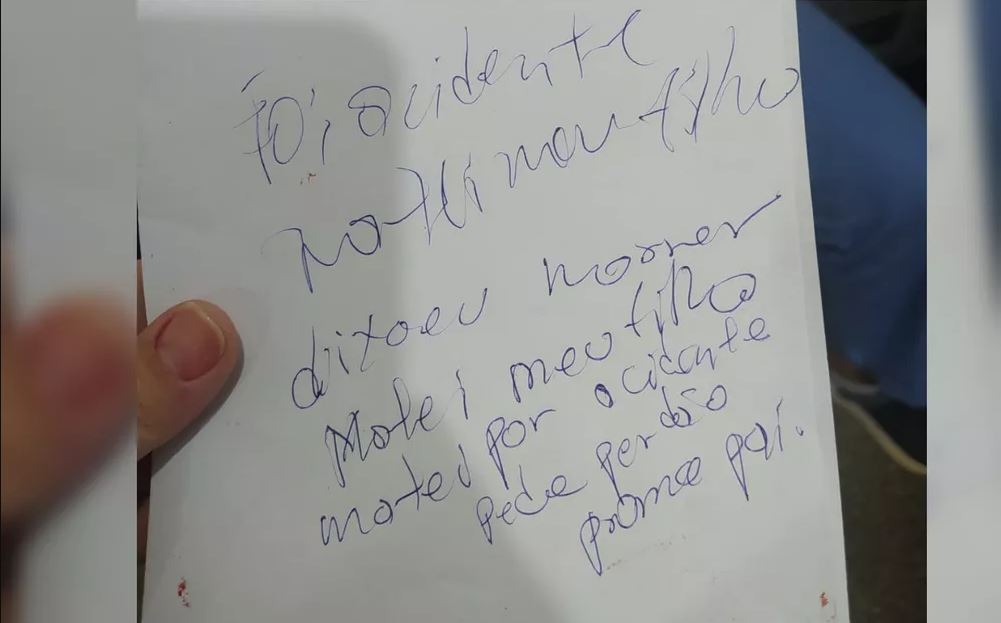 Foi acidente
matei meu filho
dixaeu morrer
Matei meu filho
matei por acidente
pede perdão
prõmae pai.